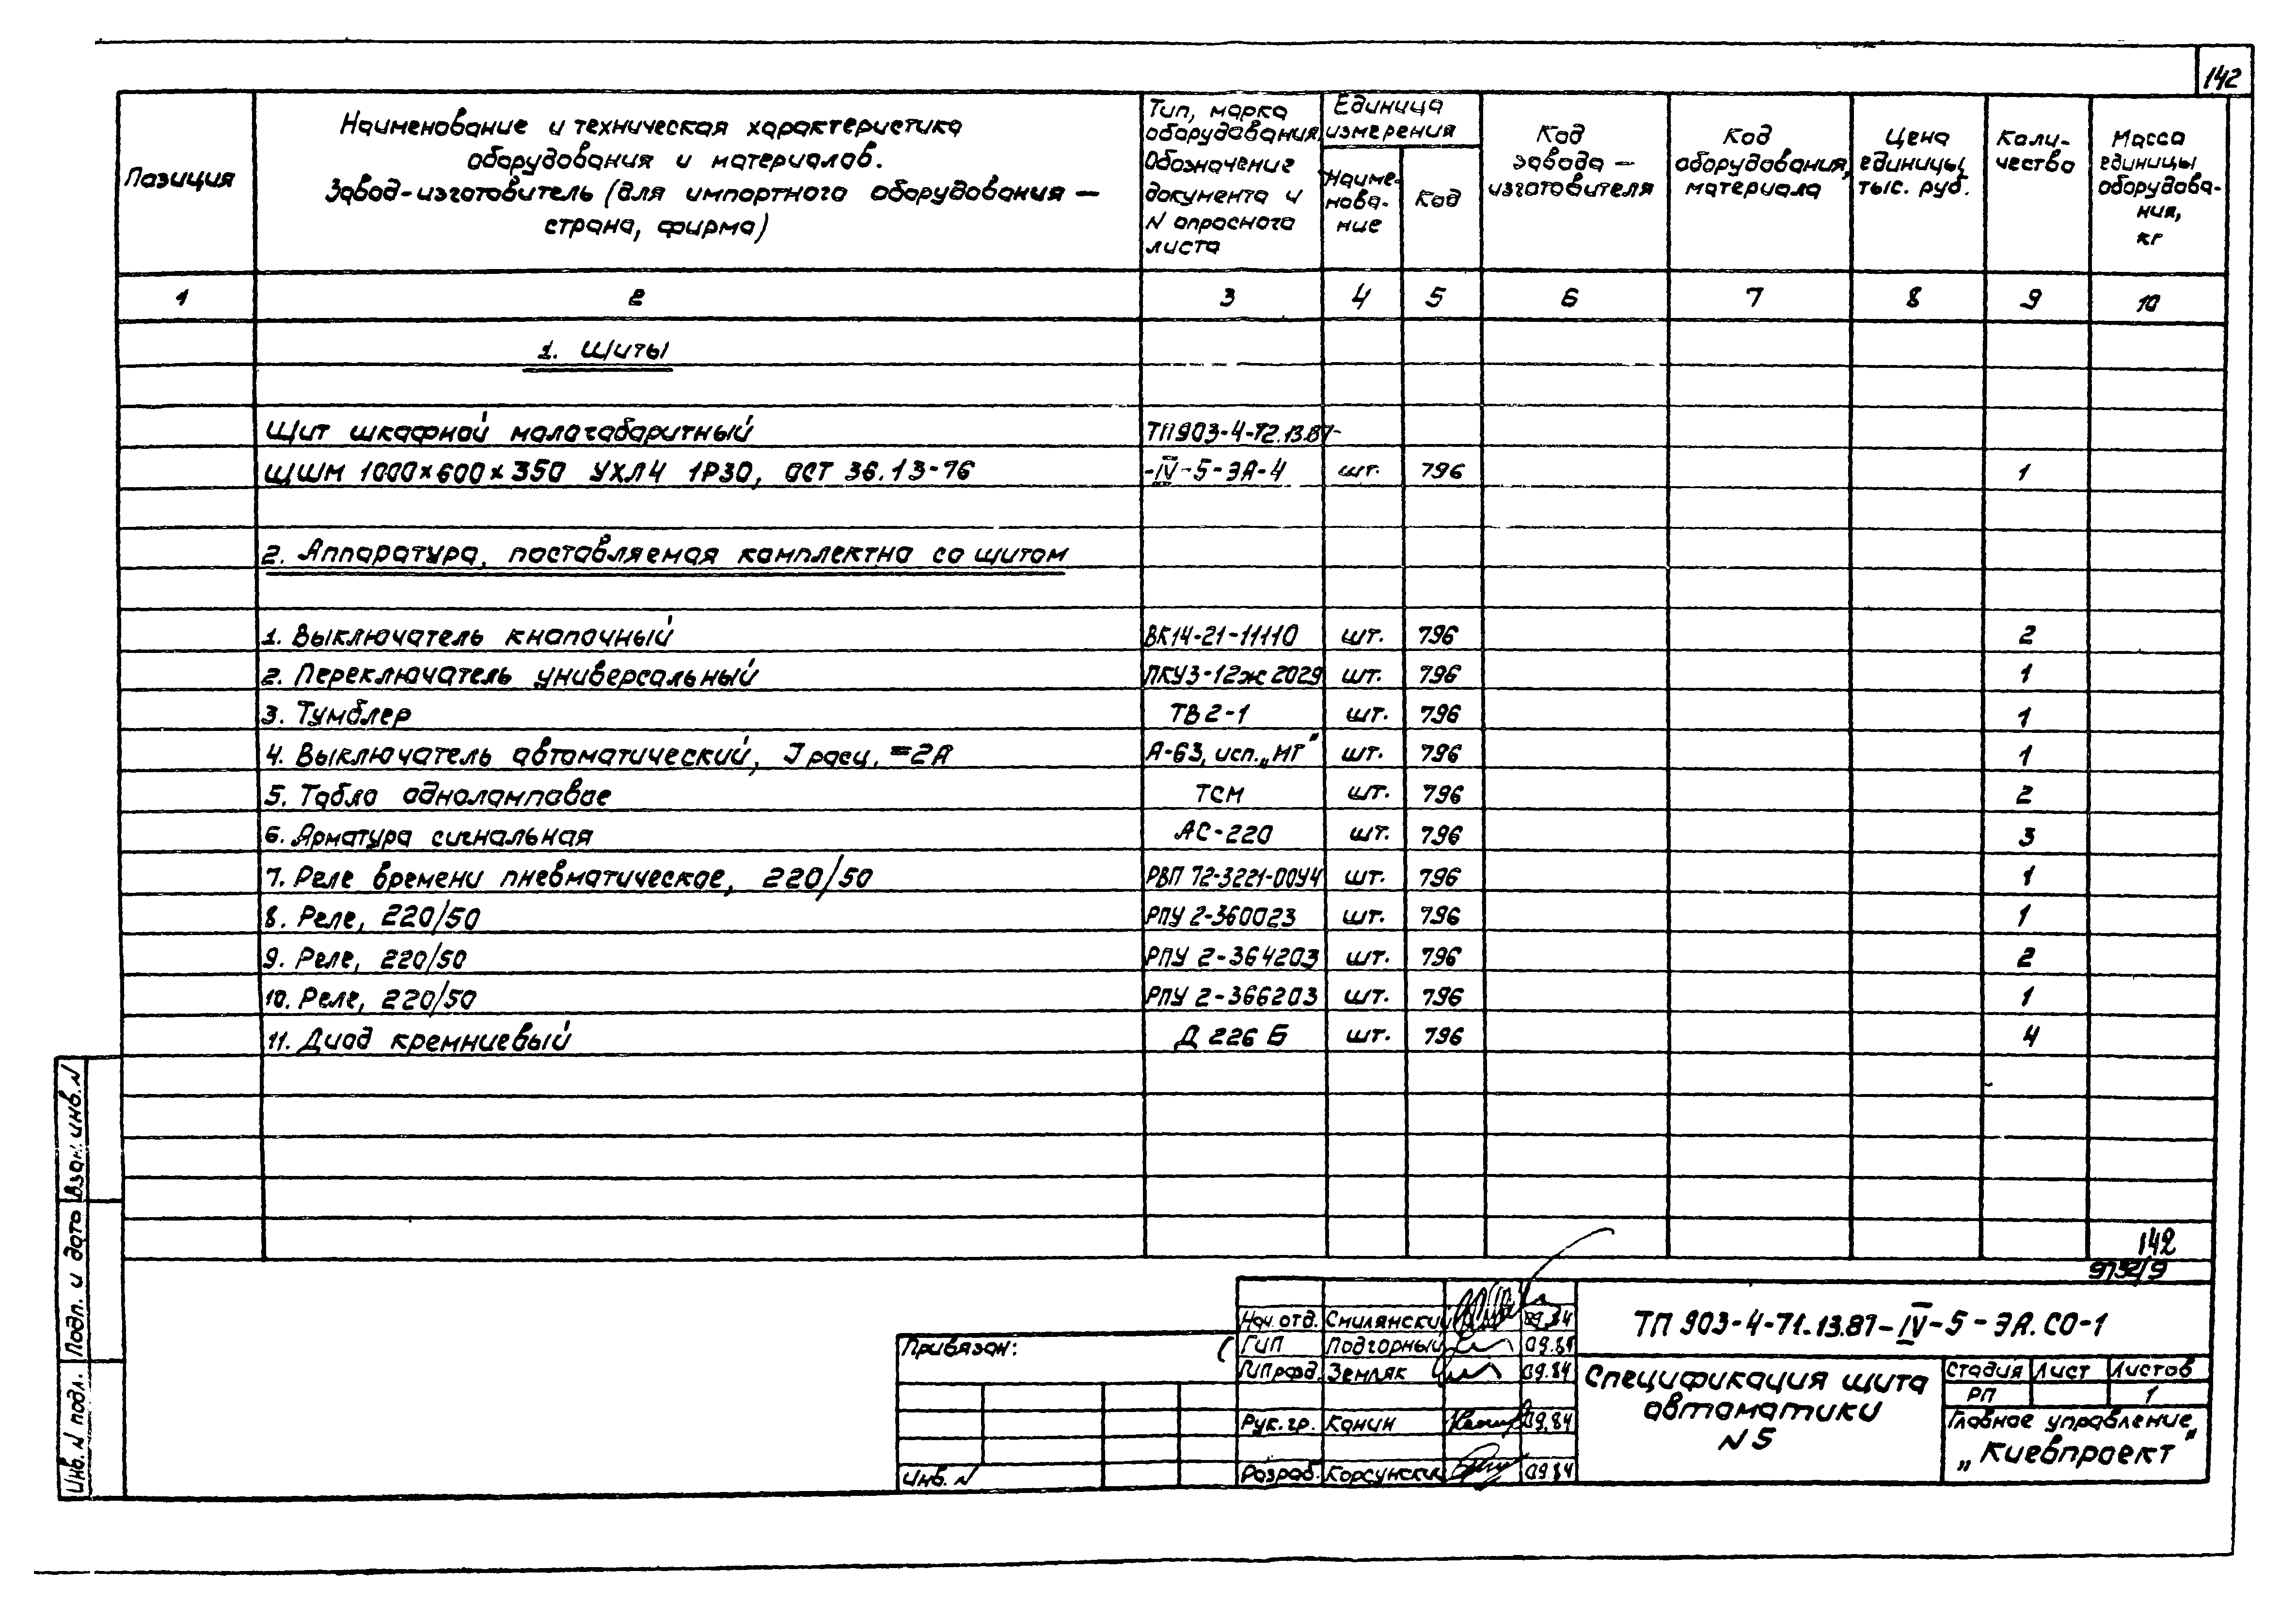 142
Позиция
Наименование и техническая характеристика
оборудования и материалов.
Завод-изготовитель (для импортного оборудования —
страна, фирма)
Тип, марка
оборудования.
Обозначение
документа и
N опросного
листа
Единица
измерения
Наиме-
нова-
ние
Код
Код
завода —
изготовителя
Код
оборудования,
материала
Цена
единицы,
тыс. руб.
Коли-
чество
Масса
единицы
оборудова-
ния,
кг
1 2 3 4 5 6 7 8 9 10
1. Щиты
Щит шкафной малогабаритный ТП903-4-72.13.87-
ЩШМ 1000х600х350 УХЛ4 1Р30, ОСТ 36.13-76 -IV-5-ЭА-4 шт. 796 1
2. Аппаратура, поставляемая комплектно со щитом
1. Выключатель кнопочный ВК14-21-11110 шт. 796 2
2. Переключатель универсальный ПКУ3-12ж2029 шт. 796 1
3. Тумблер ТВ2-1 шт. 796 1
4. Выключатель автоматический, Iрасц.=2А А-63, исп. „МГ" шт. 796 1
5. Табло одноламповое ТСМ шт. 796 2
6. Арматура сигнальная АС-220 шт. 796 3
7. Реле времени пневматическое, 220/50 РВП 72-3221-00У4 шт. 796 1
8. Реле, 220/50 РПУ 2-360023 шт. 796 1
9. Реле, 220/50 РПУ 2-364203 шт. 796 2
10. Реле, 220/50 РПУ 2-366203 шт. 796 1
11. Диод кремниевый Д 226 Б шт. 796 4
142
9732/9
Взам. инв. N
Подп. и дата
Инв. N подл.
Привязан:
Инв. N
Нач. отд. Смилянский 09.84
ГИП Подгорный 09.84
ГИПразд. Земляк 09.84
Рук. гр. Канин 09.84
Разраб. Корсунски 09.84
ТП 903-4-71.13.87-IV-5-ЭА.СО-1
Спецификация щита
автоматики
N 5
Стадия Лист Листов
РП 1
Главное управление
„Киевпроект"